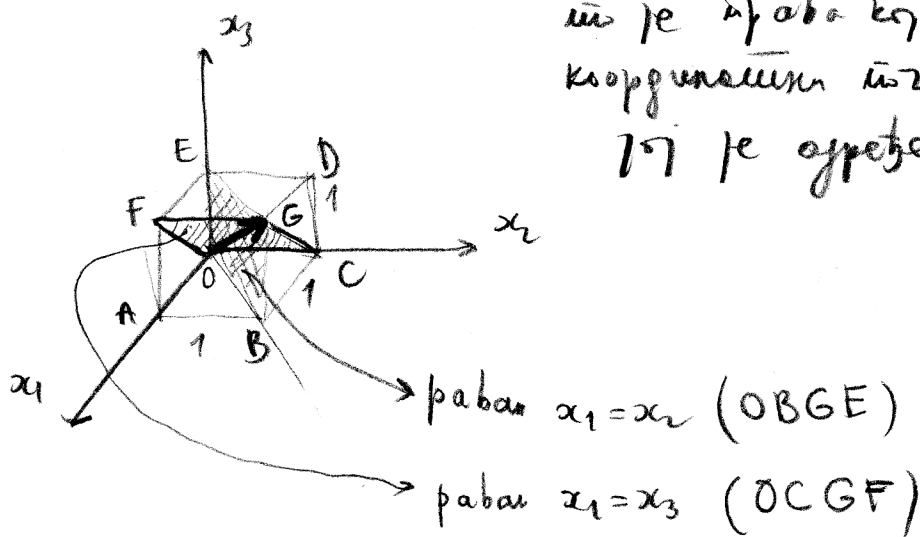 то је права кој
координатни
је одређе
x₃
E
D
1
F
G
x₂
O
1
C
A
1
B
x₁
раван x₁ = x₂ (OBGE)
раван x₁ = x₃ (OCGF)